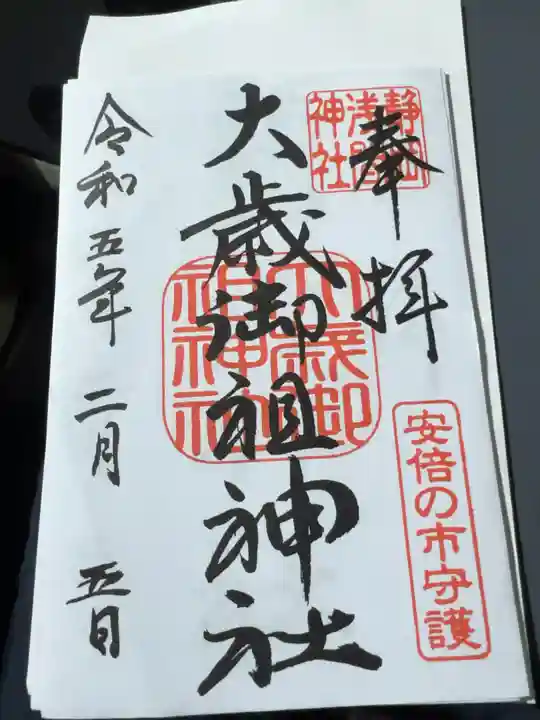 奉拝
静岡浅間神社
安倍の市守護
大歳御祖神社
大歳御祖神社
令和五年 二月 五日